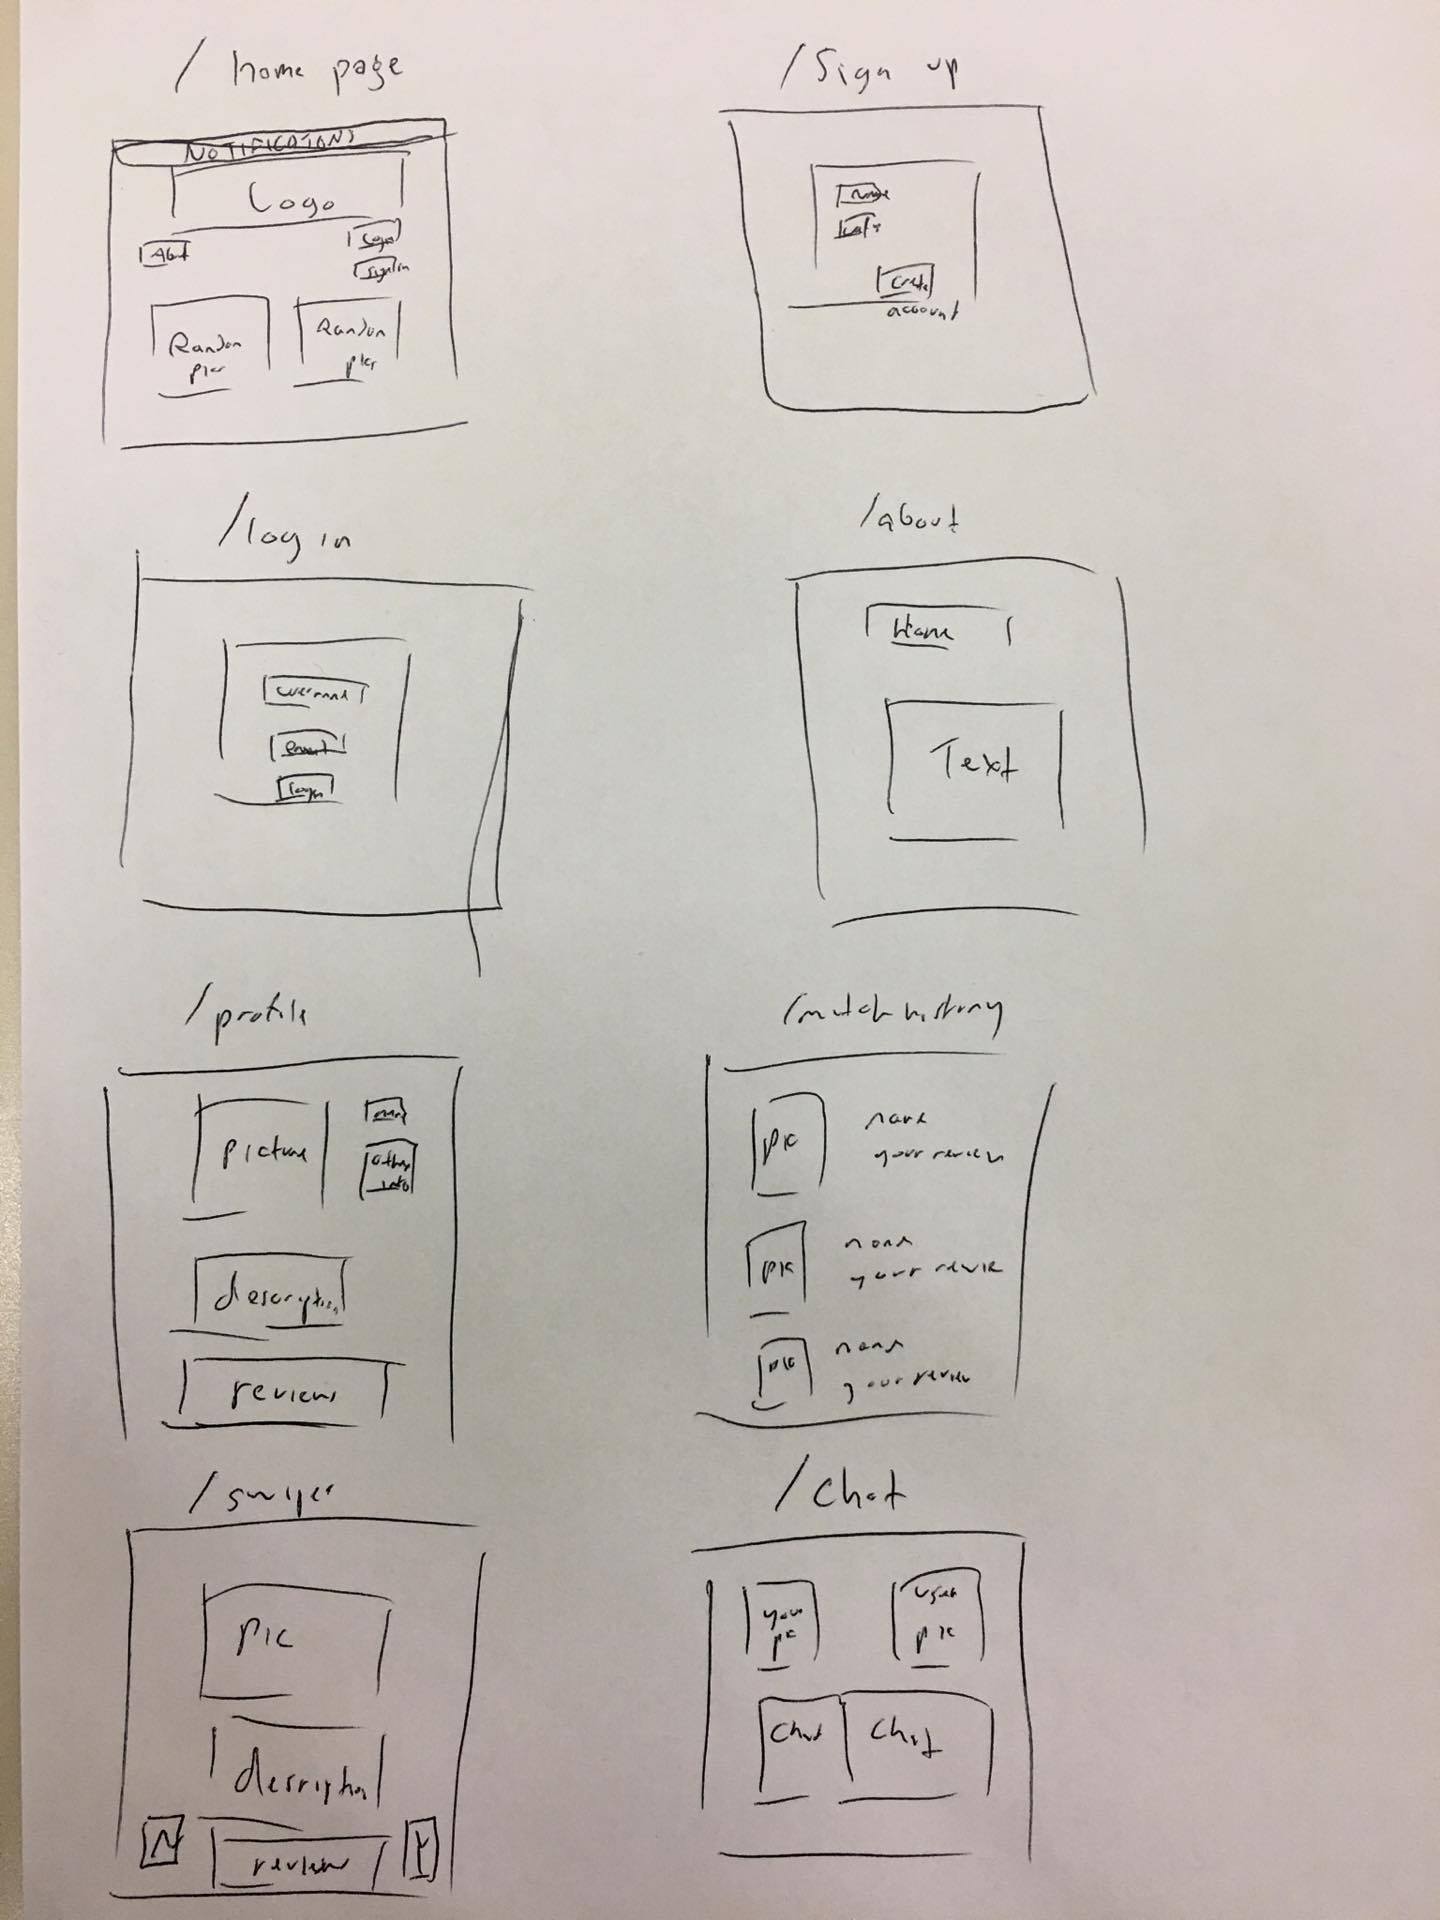 / home page
NOTIFICATIONS
Logo
About
Login
Sign in
Random
pics
Random
pics
/Sign up
Name
Create
account
/log in
username
login
/about
Home
Text
/profile
picture
name
other
info
description
reviews
/match history
pic
name
your review
pic
name
your review
pic
name
your review
/swiper
pic
description
N
review
Y
/Chat
your
pic
user
pic
Chat
Chat